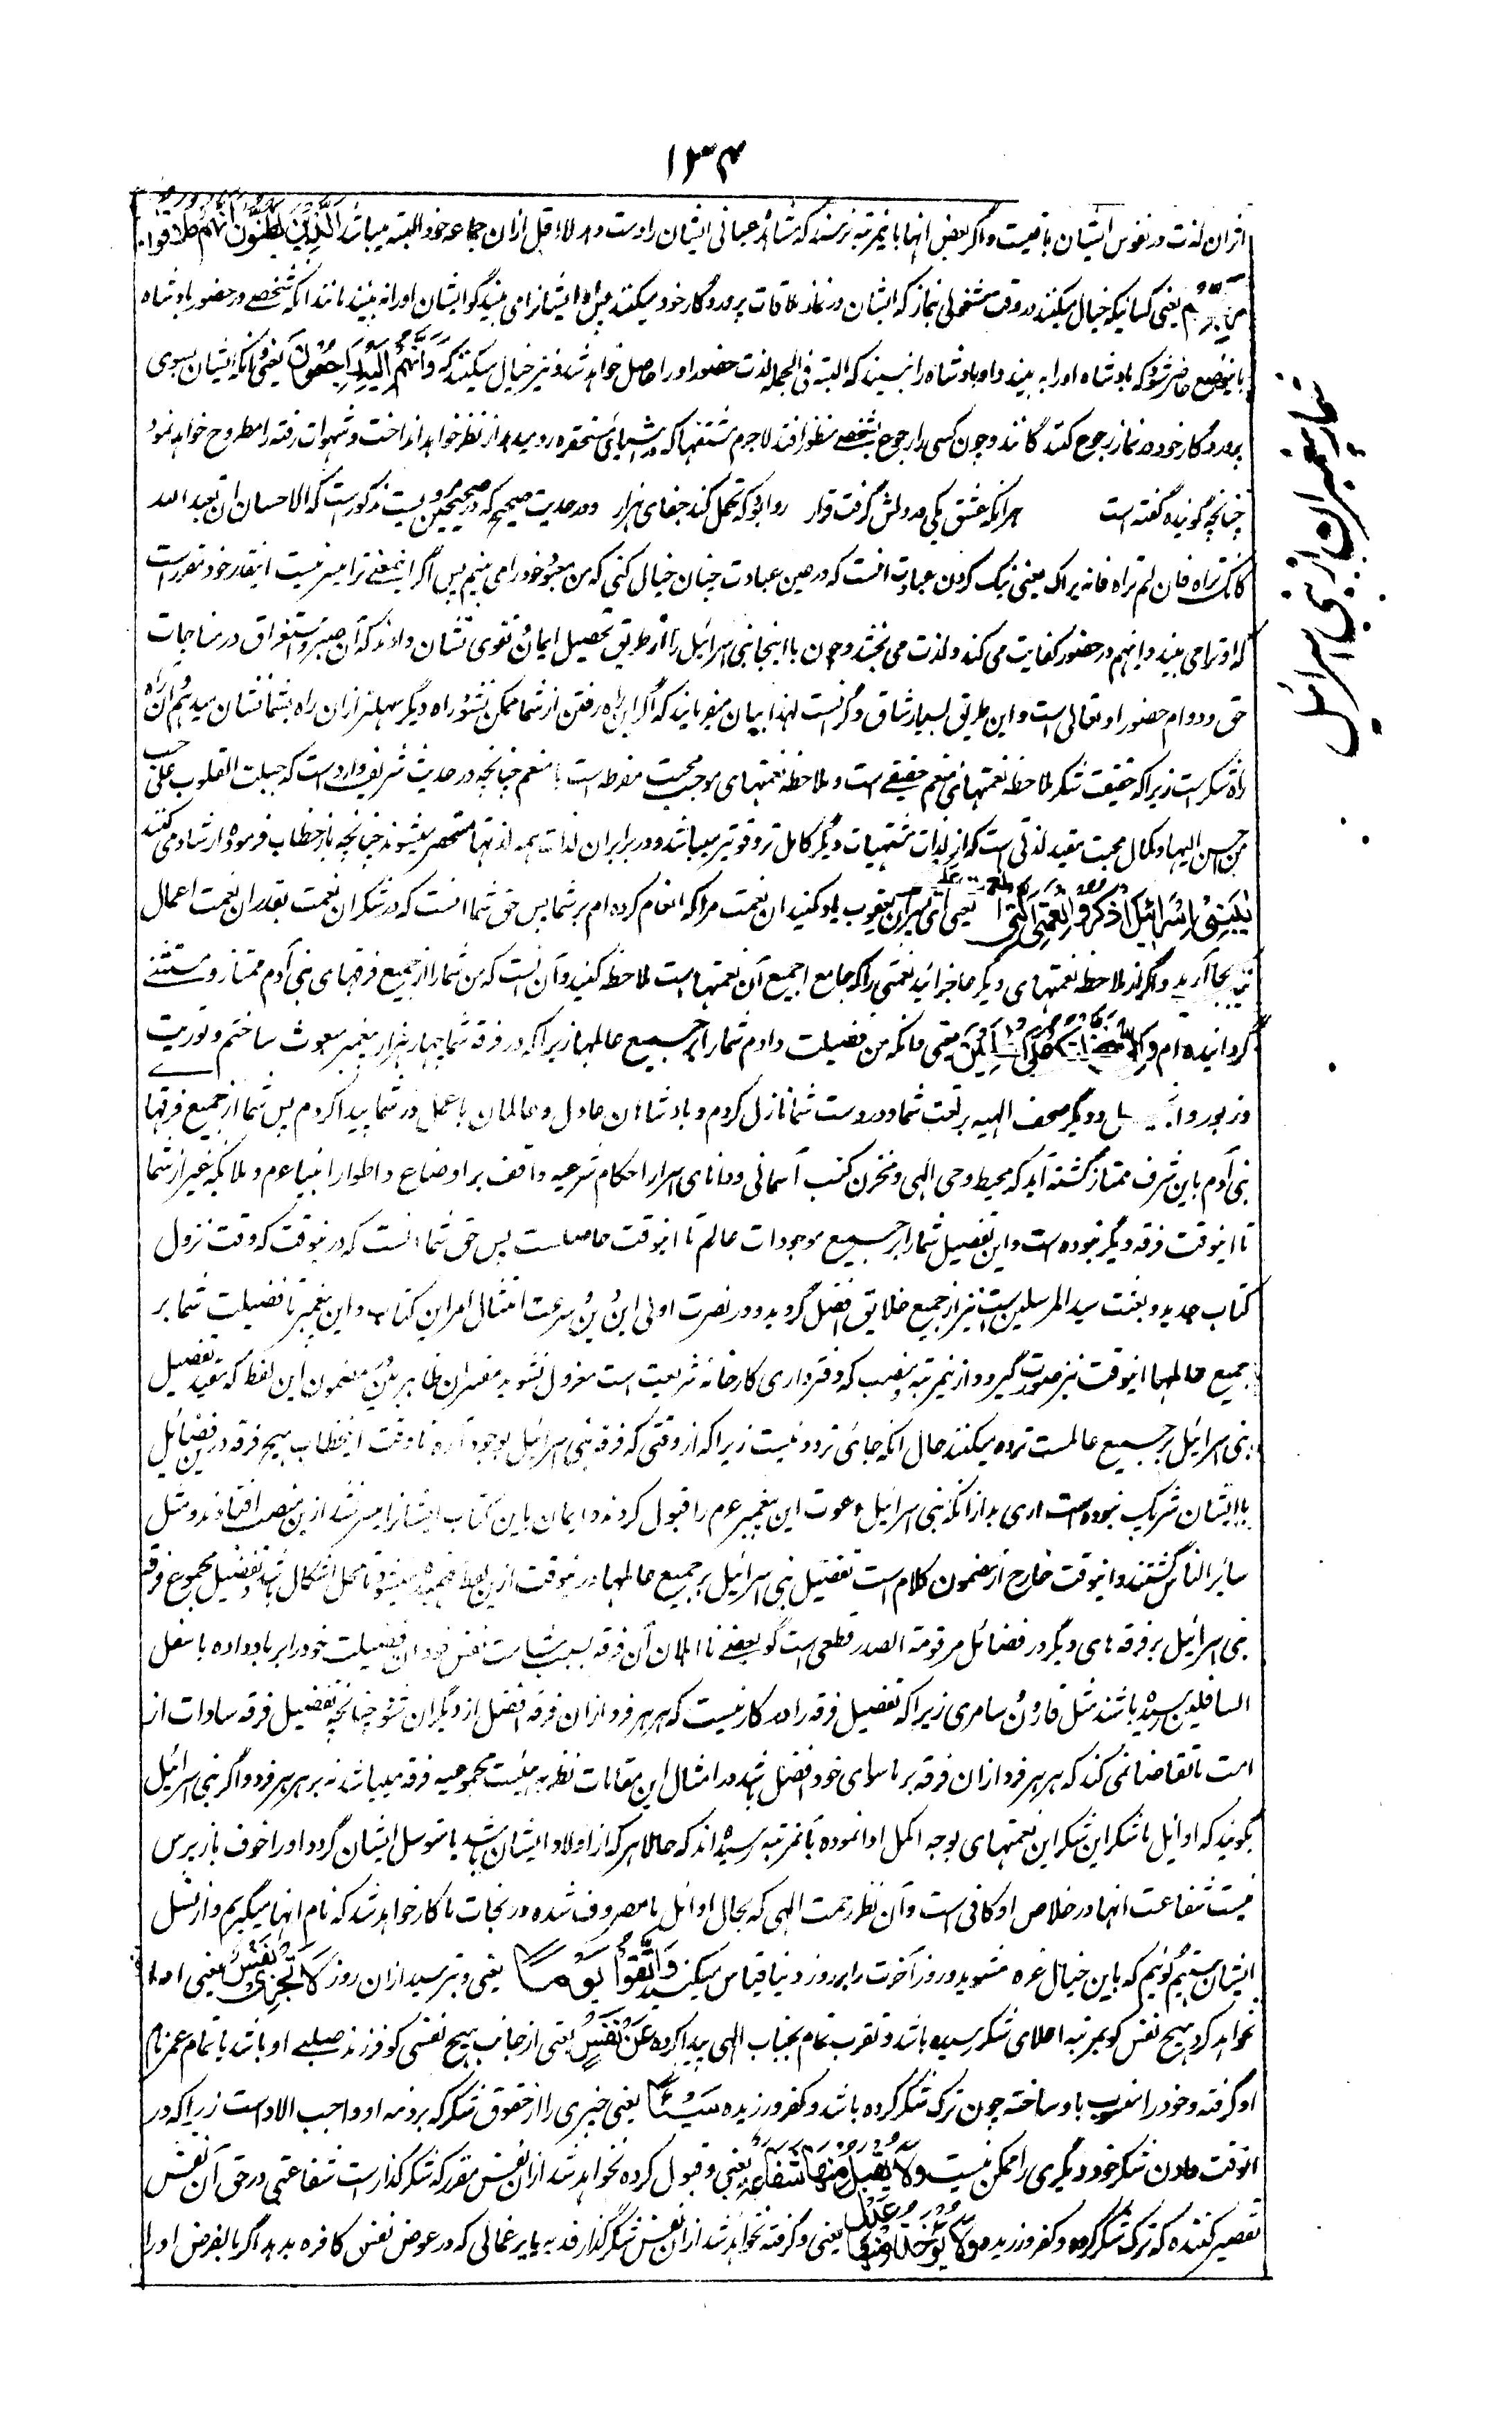 ۱۳۴
اثر آن لذت در نفوس ایشان باقیست و اگر بعض آنها باینمرتبه نرسند که مشاهده عیانی ایشان را دست دهد لااقل ازان جماعه خود البته میباشند الَّذِینَ یَظُنُّونَ اَنَّهُم مُّلٰقُوا
رَبِّهِم یعنی کسانیکه خیال میکنند در وقت مشغولی نماز که ایشان در نماز ملاقات پروردگار خود میکنند و او ایشانرا می بیند گو ایشان اورا نه بینند مانند آنکه شخصی در حضور بادشاه
باینوضع حاضر شود که بادشاه اورا به بیند و او بادشاه را نبیند که البته فی الجمله لذت حضور اورا حاصل خواهد شد و نیز خیال میکنند که وَاَنَّهُم اِلَیهِ رَاجِعُونَ یعنی و آنکه ایشان بسوی
پروردگار خود در نماز رجوع کنندگانند و چون کسی را رجوع بشخصی منظور افتد لاجرم مشتهیات که باشیای مستحقره رو میدهد از نظر خواهد انداخت و شهوات رفته را مطروح خواهد نمود
چنانچه گوینده گفته است هرآنکه عشق یکی در دلش گرفت قرار روا بود که تحمل کند جفای هزار و در حدیث صحیح که در صحیحین مرویست مذکور است که الاحسان ان تعبد الله
کانک تراه فان لم تراه فانه یراک یعنی نیک کردن عبادت آنست که در عین عبادت چنان خیال کنی که من معبود خود را می بینم پس اگر اینمعنی ترا میسر نیست اینقدر خود مقرر است
که او ترا می بیند و اینهم در حضور کفایت می کند و لذت می بخشد و چون تا اینجا بنی اسرائیل را از طریق تحصیل ایمان و تقوی نشان دادند که آن صبر و استغراق در مناجات
حق و دوام حضور او تعالی است و این طریق بسیار شاق و گرانست لهذا بیان میفرمایند که اگر این راه رفتن از شما ممکن نشود راه دیگر سهلتر ازان راه بشما نشان میدهیم و آن راه
راه شکر است زیرا که حقیقت شکر ملاحظه نعمتهای منعم حقیقی است و ملاحظه نعمتهای موجب محبت مفرطه است با منعم چنانچه در حدیث شریف وارد است که جبلت القلوب علی حب
من احسن الیها و کمال محبت مفید لذتی است که از لذات مشتهیات دیگر کامل تر و قوی تر میباشد و در برابر آن لذات همه لذتها مستحقر میشوند چنانچه باز خطاب فرموده ارشاد می کنند
یٰبَنِی اِسرَائِیلَ اذکُرُوا نِعمَتِیَ الَّتِی اَنعَمتُ عَلَیکُم یعنی ای پسران یعقوب یاد کنید آن نعمت مرا که انعام کرده ام بر شما پس حق شما آنست که در شکر آن نعمت بقدر آن نعمت اعمال
نیک بجا آرید و اگر از ملاحظه نعمتهای دیگر عاجز آئید نعمتی را که جامع جمیع آن نعمتها است ملاحظه کنید و آن آنست که من شما را از جمیع فرقهای بنی آدم ممتاز و مستثنی
گردانیده ام وَاَنِّی فَضَّلتُکُم عَلَی العٰلَمِینَ یعنی و آنکه من فضیلت دادم شما را بر جمیع عالمها زیرا که در فرقه شما چهار هزار پیغمبر مبعوث ساختم و توریت
و زبور و انجیل و دیگر صحف الهیه بر لغت شما و در دست شما نازل کردم و بادشاهان عادل و عالمان باعمل در شما پیدا کردم پس شما از جمیع فرقها
بنی آدم باین شرف ممتاز گشته آید که محیط وحی الهی و مخزن کتب آسمانی و دانای اسرار احکام شرعیه واقف بر اوضاع و اطوار انبیا عم و ملائکه غیر از شما
تا اینوقت فرقه دیگر نبوده است و این تفضیل شما را بر جمیع موجودات عالم تا اینوقت حاصلست پس حق شما آنست که درینوقت که وقت نزول
کتاب جدید و بعثت سید المرسلین است نیز از جمیع خلایق افضل گردید و در نصرت اولی این دین و سرعت امتثال امر این کتاب و این پیغمبر تا فضیلت شما بر
جمیع عالمها اینوقت نیز صورت گیرد و ازین مرتبه و منصب که دفترداری کارخانه شریعت است معزول نشوید مفسران ظاهر بین در مضمون این لفظ که مفید تفضیل
بنی اسرائیل بر جمیع عالمست تردد میکنند حال آنکه جای تردد نیست زیرا که از وقتی که فرقه بنی اسرائیل بوجود آمده تا وقت اینخطاب هیچ فرقه درین فضائل
با ایشان شریک نبوده است آری بعد ازانکه بنی اسرائیل دعوت این پیغمبر عم را قبول کردند و ایمان باین کتاب ایشانرا میسر نشد ازین منصب افتادند و مثل
سائر الناس گشتند و اینوقت خارج از مضمون کلام است تفضیل بنی اسرائیل بر جمیع عالمها درینوقت ازین لفظ فهمیده نمیشود تا محل اشکال باشد و تفضیل مجموع فرقه
بنی اسرائیل بر فرقه های دیگر در فضائل مرقومة الصدر قطعی است گو بعضی نا اهلان آن فرقه بسبب شامت نفس خود آن فضیلت خود را بر باد داده باسفل
السافلین رسیده باشند مثل قارون و سامری زیرا که تفضیل فرقه را در کار نیست که هر هر فرد ازان فرقه افضل از دیگران شود چنانچه تفضیل فرقه سادات از
امت تقاضا نمی کند که هر هر فرد ازان فرقه بر ماسوای خود افضل باشد در امثال این مقامات نظر به هیئت مجموعیه فرقه میباشد نه بر هر هر فرد و اگر بنی اسرائیل
بگویند که اوائل ما شکر این نعمتهای بوجه اکمل ادا نموده بآنمرتبه رسیده اند که حالا هر که از اولاد ایشان باشد یا متوسل ایشان گردد اورا خوف بازپرس
نیست شفاعت آنها در خلاص او کافی است و آن نظر رحمت الهی که بحال اوائل ما مصروف شده در نجات ما کار خواهد شد که نام آنها میگیریم و از نسل
ایشان هستیم گوئیم که باین خیال غره مشوید و روز آخرت را بر روز دنیا قیاس مکنید وَاتَّقُوا یَومًا یعنی و بترسید ازان روز لَا تَجزِی نَفسٌ یعنی ادا
نخواهد کرد هیچ نفس گو بمرتبه اعلای شکر رسیده باشد و تقرب تمام بجناب الهی پیدا کرده عَن نَفسٍ یعنی از جانب هیچ نفسی گو فرزند صلبی او باشد یا تمام عمر نام
او گرفته و خود را منسوب باو ساخته چون ترک شکر کرده باشد و کفر ورزیده شَیئًا یعنی چیزی را از حقوق شکر که بر ذمه او واجب الاداست زیرا که در
آنوقت دادن شکر خود دیگری را ممکن نیست وَلَا یُقبَلُ مِنهَا شَفَاعَةٌ یعنی و قبول کرده نخواهد شد ازان نفس مقرر که شکرگذار است شفاعتی در حق آن نفس
تقصیر کننده که ترک شکر کرده و کفر ورزیده وَلَا یُؤخَذُ مِنهَا عَدلٌ یعنی و گرفته نخواهد شد ازان نفس شکرگذار فدیه یا یرغمالی که در عوض نفس کافره بدهد اگر بالفرض اورا
شمار پیغمبران از بنی اسرائیل